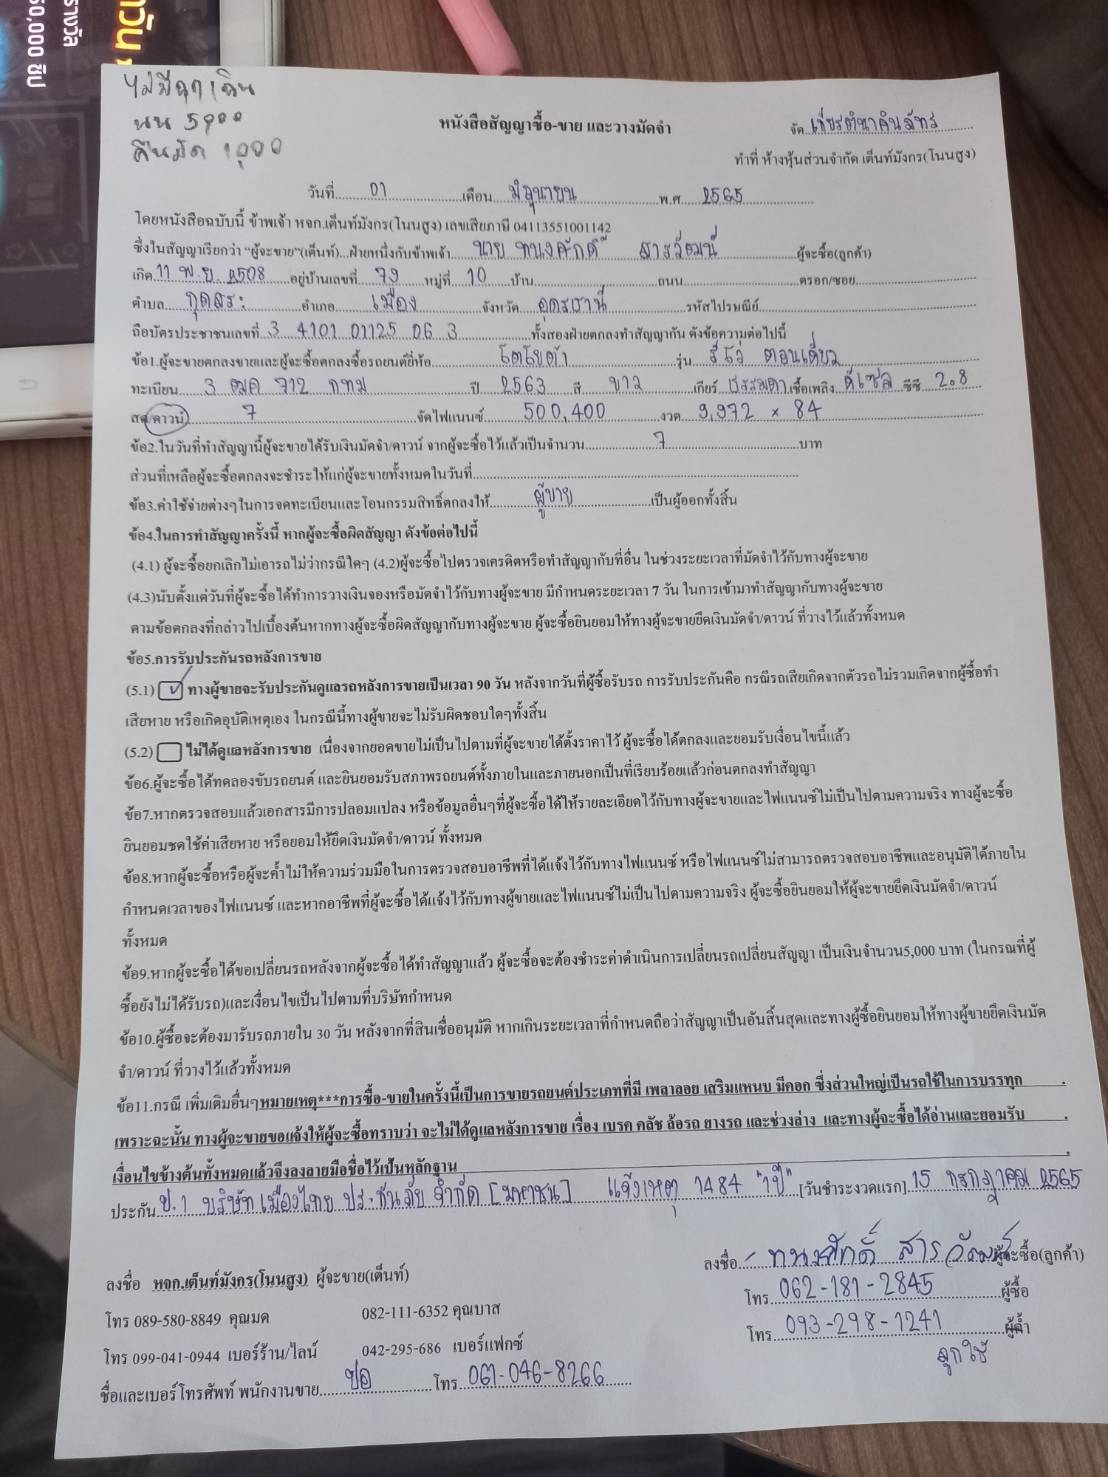 รางวัล
50,000 ชิป
ไม่มีฉุกเฉิน
นน 5900
คืนมัด 1000
หนังสือสัญญาซื้อ-ขาย และวางมัดจำ
จัด เกียรตินาคินภัทร
ทำที่ ห้างหุ้นส่วนจำกัด เต็นท์มังกร(โนนสูง)
วันที่ 01 เดือน มิถุนายน พ.ศ. 2565
โดยหนังสือฉบับนี้ ข้าพเจ้า หจก.เต็นท์มังกร(โนนสูง) เลขเสียภาษี 04113551001142
ซึ่งในสัญญาเรียกว่า "ผู้จะขาย"(เต็นท์)...ฝ่ายหนึ่งกับข้าพเจ้า นาย ทนงศักดิ์ สารวัฒน์ ผู้จะซื้อ(ลูกค้า)
เกิด 11 พ.ย. 2508 อยู่บ้านเลขที่ 79 หมู่ที่ 10 บ้าน ถนน ตรอก/ซอย
ตำบล กุดสระ อำเภอ เมือง จังหวัด อุดรธานี รหัสไปรษณีย์
ถือบัตรประชาชนเลขที่ 3 4101 01125 06 3 ทั้งสองฝ่ายตกลงทำสัญญากัน ดังข้อความต่อไปนี้
ข้อ1.ผู้จะขายตกลงขายและผู้จะซื้อตกลงซื้อรถยนต์ยี่ห้อ โตโยต้า รุ่น รีโว่ ตอนเดียว
ทะเบียน 3 ฒค 712 กทม ปี 2563 สี ขาว เกียร์ ธรรมดา เชื้อเพลิง ดีเซล ซีซี 2.8
สด/ดาวน์ 7 จัดไฟแนนซ์ 500,400 งวด 9,972 x 84
ข้อ2.ในวันที่ทำสัญญานี้ผู้จะขายได้รับเงินมัดจำ/ดาวน์ จากผู้จะซื้อไว้แล้วเป็นจำนวน 7 บาท
ส่วนที่เหลือผู้จะซื้อตกลงจะชำระให้แก่ผู้จะขายทั้งหมดในวันที่
ข้อ3.ค่าใช้จ่ายต่างๆในการจดทะเบียนและโอนกรรมสิทธิ์ตกลงให้ ผู้ขาย เป็นผู้ออกทั้งสิ้น
ข้อ4.ในการทำสัญญาครั้งนี้ หากผู้จะซื้อผิดสัญญา ดังข้อต่อไปนี้
(4.1) ผู้จะซื้อยกเลิกไม่เอารถไม่ว่ากรณีใดๆ (4.2)ผู้จะซื้อไปตรวจเครดิตหรือทำสัญญากับที่อื่น ในช่วงระยะเวลาที่มัดจำไว้กับทางผู้จะขาย
(4.3)นับตั้งแต่วันที่ผู้จะซื้อได้ทำการวางเงินจองหรือมัดจำไว้กับทางผู้จะขาย มีกำหนดระยะเวลา 7 วัน ในการเข้ามาทำสัญญากับทางผู้จะขาย
ตามข้อตกลงที่กล่าวไปเบื้องต้นหากทางผู้จะซื้อผิดสัญญากับทางผู้จะขาย ผู้จะซื้อยินยอมให้ทางผู้จะขายยึดเงินมัดจำ/ดาวน์ ที่วางไว้แล้วทั้งหมด
ข้อ5.การรับประกันรถหลังการขาย
(5.1) ทางผู้ขายจะรับประกันดูแลรถหลังการขายเป็นเวลา 90 วัน หลังจากวันที่ผู้ซื้อรับรถ การรับประกันคือ กรณีรถเสียเกิดจากตัวรถไม่รวมเกิดจากผู้ซื้อทำ
เสียหาย หรือเกิดอุบัติเหตุเอง ในกรณีนี้ทางผู้ขายจะไม่รับผิดชอบใดๆทั้งสิ้น
(5.2) ไม่ได้ดูแลหลังการขาย เนื่องจากยอดขายไม่เป็นไปตามที่ผู้จะขายได้ตั้งราคาไว้ ผู้จะซื้อได้ตกลงและยอมรับเงื่อนไขนี้แล้ว
ข้อ6.ผู้จะซื้อได้ทดลองขับรถยนต์ และยินยอมรับสภาพรถยนต์ทั้งภายในและภายนอกเป็นที่เรียบร้อยแล้วก่อนตกลงทำสัญญา
ข้อ7.หากตรวจสอบแล้วเอกสารมีการปลอมแปลง หรือข้อมูลอื่นๆที่ผู้จะซื้อได้ให้รายละเอียดไว้กับทางผู้จะขายและไฟแนนซ์ไม่เป็นไปตามความจริง ทางผู้จะซื้อ
ยินยอมชดใช้ค่าเสียหาย หรือยอมให้ยึดเงินมัดจำ/ดาวน์ ทั้งหมด
ข้อ8.หากผู้จะซื้อหรือผู้จะค้ำไม่ให้ความร่วมมือในการตรวจสอบอาชีพที่ได้แจ้งไว้กับทางไฟแนนซ์ หรือไฟแนนซ์ไม่สามารถตรวจสอบอาชีพและอนุมัติได้ภายใน
กำหนดเวลาของไฟแนนซ์ และหากอาชีพที่ผู้จะซื้อได้แจ้งไว้กับทางผู้ขายและไฟแนนซ์ไม่เป็นไปตามความจริง ผู้จะซื้อยินยอมให้ผู้จะขายยึดเงินมัดจำ/ดาวน์
ทั้งหมด
ข้อ9.หากผู้จะซื้อได้ขอเปลี่ยนรถหลังจากผู้จะซื้อได้ทำสัญญาแล้ว ผู้จะซื้อจะต้องชำระค่าดำเนินการเปลี่ยนรถเปลี่ยนสัญญา เป็นเงินจำนวน5,000 บาท (ในกรณที่ผู้
ซื้อยังไม่ได้รับรถ)และเงื่อนไขเป็นไปตามที่บริษัทกำหนด
ข้อ10.ผู้ซื้อจะต้องมารับรถภายใน 30 วัน หลังจากที่สินเชื่ออนุมัติ หากเกินระยะเวลาที่กำหนดถือว่าสัญญาเป็นอันสิ้นสุดและทางผู้ซื้อยินยอมให้ทางผู้ขายยึดเงินมัด
จำ/ดาวน์ ที่วางไว้แล้วทั้งหมด
ข้อ11.กรณี เพิ่มเติมอื่นๆหมายเหตุ***การซื้อ-ขายในครั้งนี้เป็นการขายรถยนต์ประเภทที่มี เพลาลอย เสริมแหนบ มีคอก ซึ่งส่วนใหญ่เป็นรถใช้ในการบรรทุก
เพราะฉะนั้น ทางผู้จะขายขอแจ้งให้ผู้จะซื้อทราบว่า จะไม่ได้ดูแลหลังการขาย เรื่อง เบรค คลัช ล้อรถ ยางรถ และช่วงล่าง และทางผู้จะซื้อได้อ่านและยอมรับ
เงื่อนไขข้างต้นทั้งหมดแล้วจึงลงลายมือชื่อไว้เป็นหลักฐาน
ประกัน ป.1 บริษัท เมืองไทย ประกันภัย จำกัด [มหาชน] แจ้งเหตุ 1484 "1ปี" [วันชำระงวดแรก] 15 กรกฎาคม 2565
ลงชื่อ ทนงศักดิ์ สารวัฒน์ ผู้จะซื้อ(ลูกค้า)
ลงชื่อ หจก.เต็นท์มังกร(โนนสูง) ผู้จะขาย(เต็นท์)
โทร 062-181-2845 ผู้ซื้อ
โทร 089-580-8849 คุณมด 082-111-6352 คุณบาส
โทร 093-298-1241 ผู้ค้ำ
โทร 099-041-0944 เบอร์ร้าน/ไลน์ 042-295-686 เบอร์แฟกซ์
ลูกใช้
ชื่อและเบอร์โทรศัพท์ พนักงานขาย ปอ โทร 061-046-8266